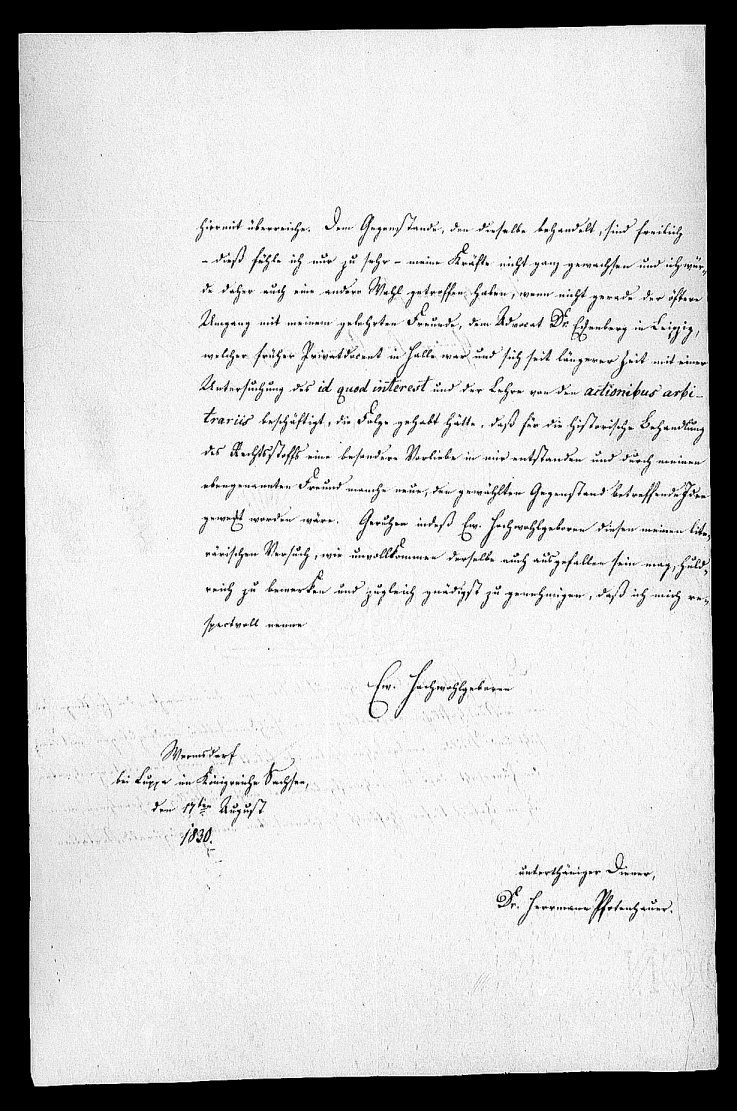 hiermit überreiche. Dem Gegenstande, den dieselbe behandelt, sind freilich
– dieß fühle ich nur zu sehr – meine Kräfte nicht ganz gewachsen und ich wür-
de daher auch eine andere Wahl getroffen haben, wenn nicht gerade der öftere
Umgang mit meinem gelehrten Freunde, dem Advocat Dr. Eisenberg in Leipzig,
welcher früher Privatdocent in Halle war und sich seit längerer Zeit mit einer
Untersuchung des id quod interest und der Lehre von den actionibus arbi-
trariis beschäftigt, die Folge gehabt hätte, daß für die historische Behandlung
des Rechtsstoffs eine besondere Vorliebe in mir entstanden und durch meinen
ebengenannten Freund manche neue, den gewählten Gegenstand betreffende Idee
geweckt worden wäre. Geruhen indeß Ew. Hochwohlgeboren diesen meinen lite-
rärischen Versuch, wie unvollkommen derselbe auch ausgefallen sein mag, huld-
reich zu bemerken und zugleich gnädigst zu genehmigen, daß ich mich re-
spectvoll nenne
Ew. Hochwohlgeboren
Wermsdorf
bei Luppa im Königreiche Sachsen,
den 17ten August
1830.
unterthäniger Diener,
Dr. Herrmann Pfotenhauer.